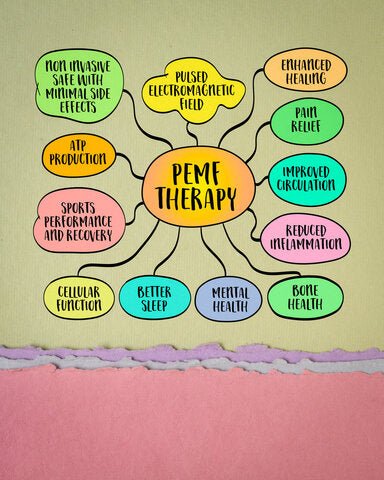 NON INVASIVE
SAFE WITH
MINIMAL SIDE
EFFECTS
PULSED
ELECTROMAGNETIC
FIELD
ENHANCED
HEALING
ATP
PRODUCTION
PEMF
THERAPY
PAIN
RELIEF
IMPROVED
CIRCULATION
SPORTS
PERFORMANCE
AND RECOVERY
REDUCED
INFLAMMATION
CELLULAR
FUNCTION
BETTER
SLEEP
MENTAL
HEALTH
BONE
HEALTH